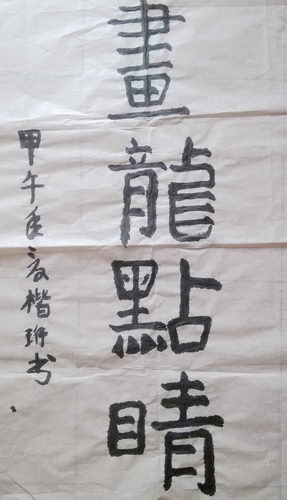 畫龍點睛
甲午年夏楷珩书